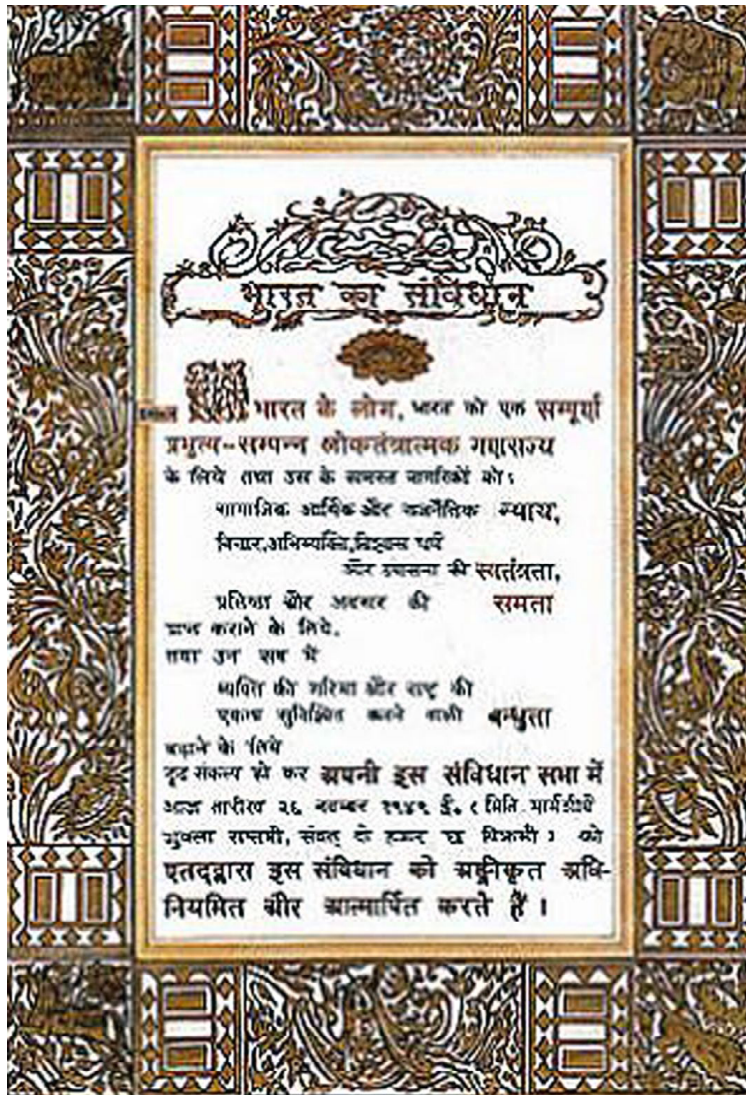 भारत का संविधान
हम, भारत के लोग, भारत को एक सम्पूर्ण
प्रभुत्व-सम्पन्न लोकतंत्रात्मक गणराज्य
के लिये तथा उस के समस्त नागरिकों को :
सामाजिक आर्थिक और राजनैतिक न्याय,
विचार, अभिव्यक्ति, विश्वास धर्म
और उपासना की स्वतंत्रता,
प्रतिष्ठा और अवसर की समता
प्राप्त कराने के लिये,
तथा उन सब में
व्यक्ति की गरिमा और राष्ट्र की
एकता सुनिश्चित करने वाली बन्धुता
बढ़ाने के लिये
दृढ़ संकल्प हो कर अपनी इस संविधान सभा में
आज तारीख २६ नवम्बर १९४९ ई. ( मिति मार्गशीर्ष
शुक्ला सप्तमी, संवत् दो हजार छ विक्रमी ) को
एतद्द्वारा इस संविधान को अङ्गीकृत अधि-
नियमित और आत्मार्पित करते हैं ।